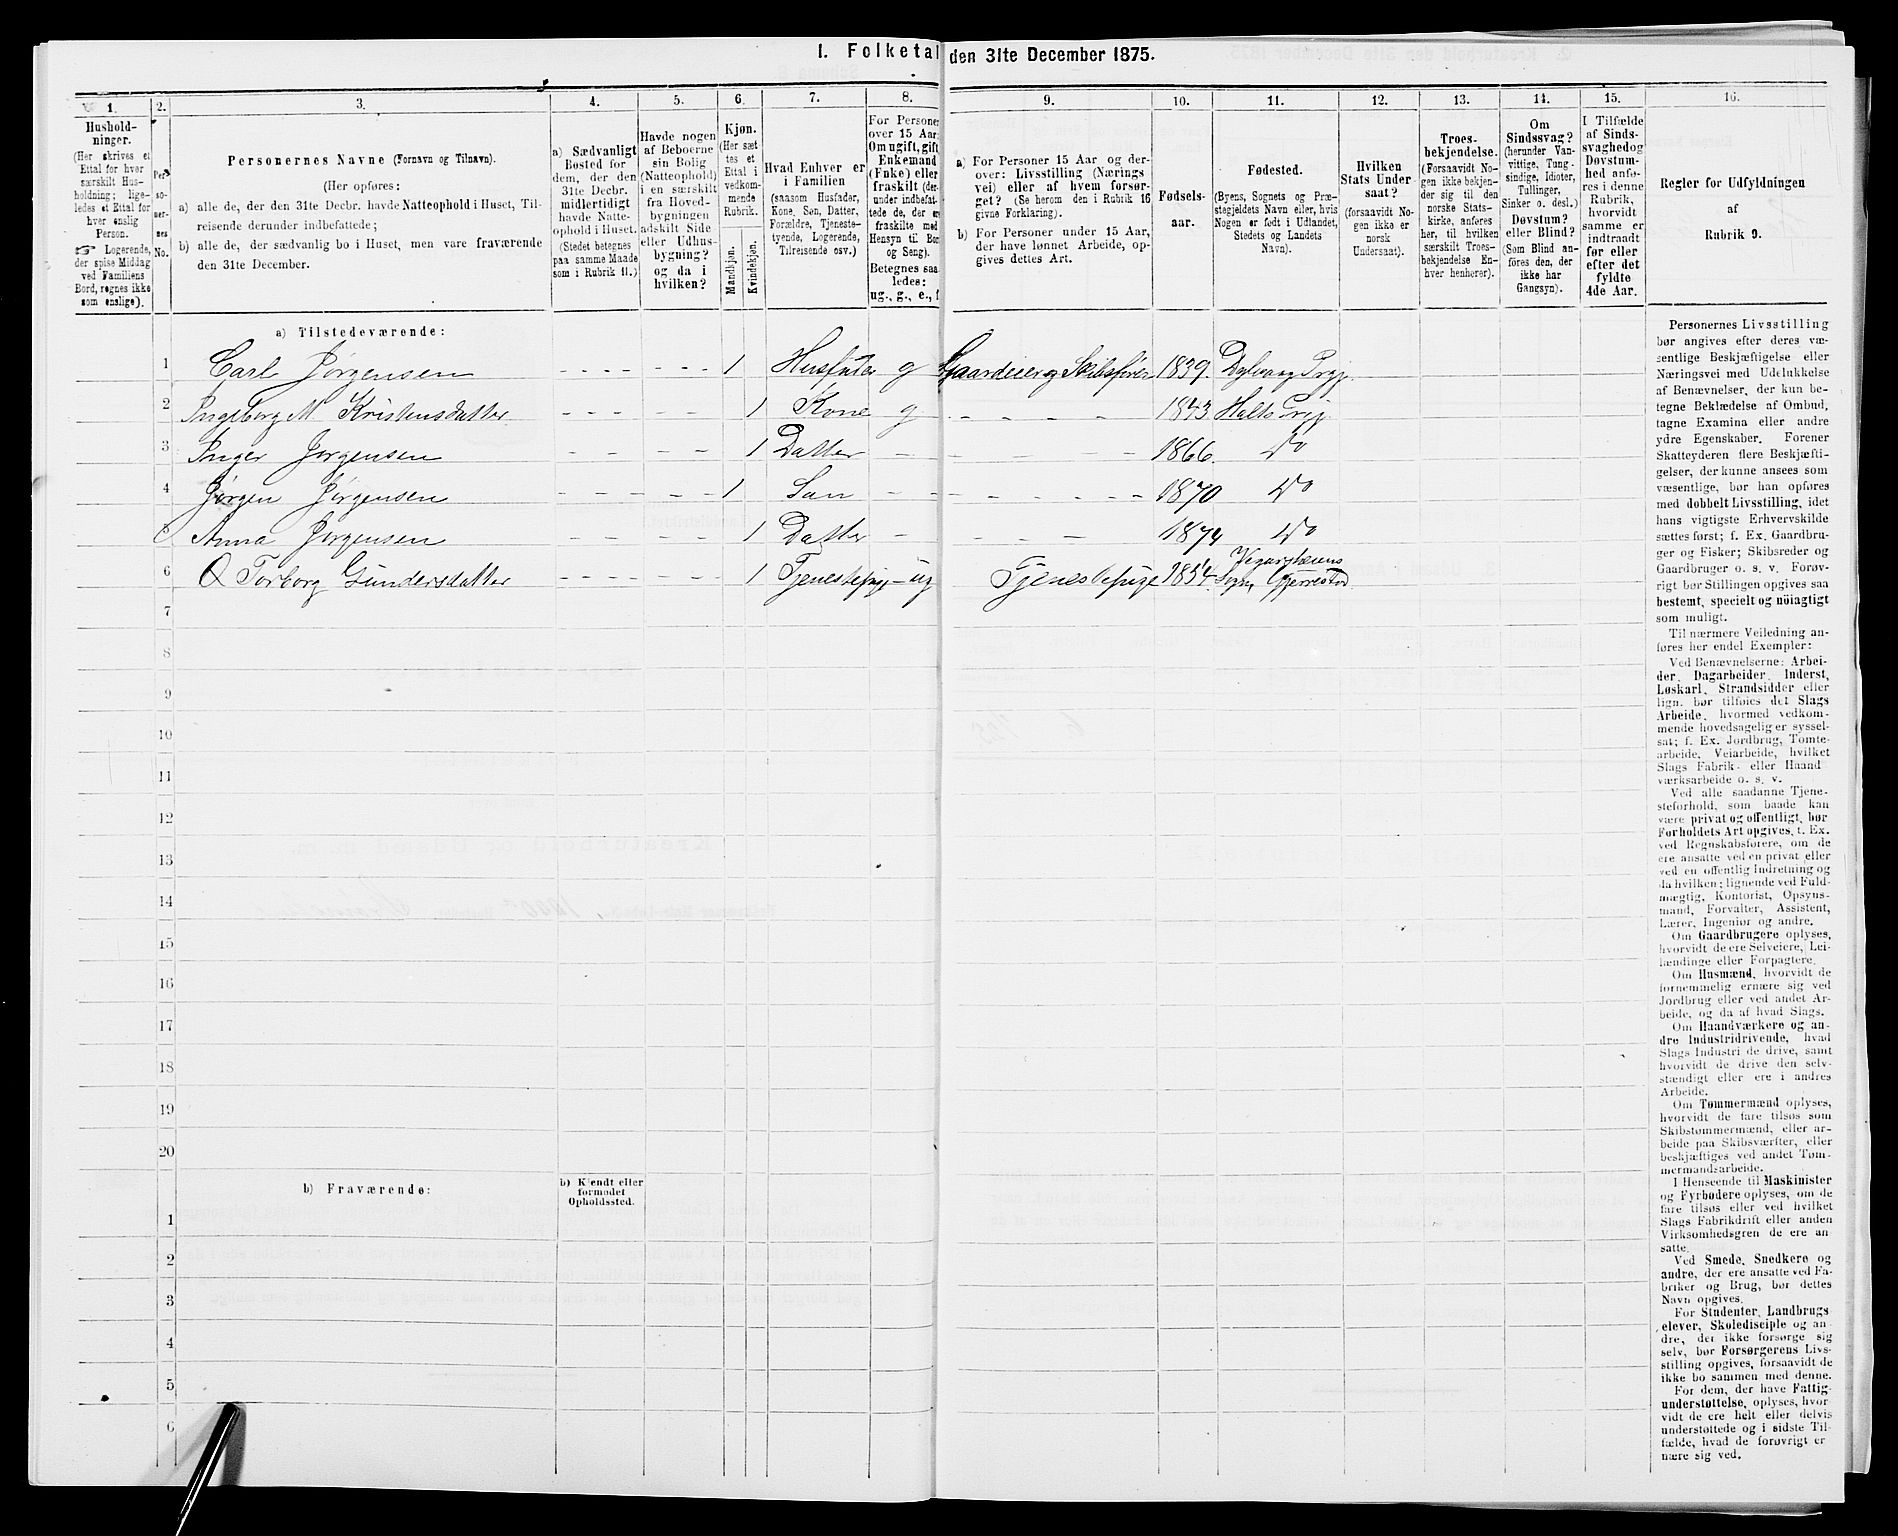 1. Folketal den 31te December 1875.
1. 2. 3. 4. 5. 6. 7. 8. 9. 10. 11. 12. 13. 14. 15. 16.
Hushold-
ninger.
(Her skrives et
Ettal for hver
særskilt Hus-
holdning; lige-
ledes et Ettal for
hver enslig
Person.
☞ Logerende,
der spise Middag
ved Familiens
Bord, regnes ikke
som enslige).
Per
so-
ner-
nes
No.
Personernes Navne (Fornavn og Tilnavn).
(Her opføres:
a) alle de, der den 31te Decbr. havde Natteophold i Huset, Til-
reisende derunder indbefattede;
b) alle de, der sædvanlig bo i Huset, men vare fraværende
den 31te December.
a) Sædvanligt
Bosted for
dem, der den
31te Decbr.
midlertidigt
havde Natte-
ophold i Huset.
(Stedet betegnes
paa samme Maade
som i Rubrik 11.)
Havde nogen
af Beboerne
sin Bolig
(Natteophold)
i en særskilt
fra Hoved-
bygningen
adskilt Side
eller Udhus-
bygning?
og da i
hvilken?
Kjøn.
(Her sæt-
tes et
Ettal i
vedkom-
mende
Rubrik.
Mandkjøn.
Kvindekjøn.
Hvad Enhver er
i Familien
(saasom Husfader,
Kone, Søn, Datter,
Forældre, Tjeneste-
tyende, Logerende,
Tilreisende osv.)
For Personer
over 15 Aar:
Om ugift, gift,
Enkemand
(Enke) eller
fraskilt (der-
under indbefat-
tede de, der ere
fraskilte med
Hensyn til Bord
og Seng).
Betegnes saa-
ledes:
ug., g., e., f.
a) For Personer 15 Aar og der-
over: Livsstilling (Nærings
vei) eller af hvem forsør-
get? (Se herom den i Rubrik 16
givne Forklaring).
b) For Personer under 15 Aar,
der have lønnet Arbeide, op-
gives dettes Art.
Fødsels-
aar.
Fødested.
(Byens, Sognets og Præ-
stegjeldets Navn eller, hvis
Nogen er født i Udlandet,
Stedets og Landets
Navn).
Hvilken
Stats Under
saat?
(forsaavidt No-
gen ikke er
norsk
Undersaat).
Troes-
bekjendelse.
(Forsaavidt No-
gen ikke bekjen-
der sig til den
norske Stats-
kirke, anføres
her, til hvilken
særskilt Troes-
bekjendelse En-
hver henhører).
Om
Sindssvag?
(herunder Van-
vittige, Tung-
sindige, Idioter,
Tullinger,
Sinker o. desl.)
Døvstum?
eller Blind?
(Som Blind an-
føres den, der
ikke har
Gangsyn).
I Tilfælde
af Sinds-
svaghed og
Døvstum-
hed anfø-
res i denne
Rubrik,
hvorvidt
samme er
indtraadt
før eller
efter det
fyldte
4de Aar.
Regler for Udfyldningen
af
Rubrik 9.
a) Tilstedeværende:
1 Carl Jørgensen 1 Husfader g Gaardeier og Skibsfører 1839. Dybvaag Prgj.
2 Ingeborg M Kristensdatter 1 Kone g 1843 Holts Prgj.
3 Inger Jørgensen 1 Datter 1866. Do
4 Jørgen Jørgensen 1 Søn 1870 Do
5 Anna Jørgensen 1 Datter 1874 Do
6 Torborg Gundersdatter 1 Tjenestepige ug Tjenestepige 1854. Vegarsheiens
Sogn Gjerrestad
7
8
9
10
11
12
13
14
15
16
17
18
19
20
b) Fraværende:
b) Kjendt eller
formodet
Opholdssted.
1
2
3
4
5
6
Personernes Livsstilling
bør angives efter deres væ-
sentlige Beskjæftigelse eller
Næringsvei med Udelukkelse
af Benævnelser, der kun be-
tegne Beklædelse af Ombud,
tagne Examina eller andre
ydre Egenskaber. Forener
Skatteyderen flere Beskjæfti-
gelser, der kunne ansees som
væsentlige, bør han opføres
med dobbelt Livsstilling, idet
hans vigtigste Erhvervskilde
sættes først; f. Ex. Gaardbru-
ger og Fisker; Skibsreder og
Gaardbruger o. s. v. Forøv-
rigt bør Stillingen opgives saa
bestemt, specielt og nöiagtigt
som muligt.
Til nærmere Veiledning an-
føres her endel Exempler:
Ved Benævnelserne: Arbei-
der, Dagarbeider, Inderst,
Løskarl, Strandsidder eller
lign. bør tilføies det Slags
Arbeide, hvormed vedkom-
mende hovedsagelig er syssel-
sat; f. Ex. Jordbrug, Tomte-
arbeide, Veiarbeide, hvilket
Slags Fabrik- eller Haand
værksarbeide o. s. v.
Ved alle saadanne Tjene-
steforhold, som baade kan
være privat og offentligt, bør
Forholdets Art opgives, t. Ex.
ved Regnskabsførere, om de
ere ansatte ved en privat eller
ved en offentlig Indretning og
da hvilken; lignende ved Fuld-
mægtig, Kontorist, Opsyns-
mand, Forvalter, Assistent,
Lærer, Ingeniør og andre.
Om Gaardbrugere oplyses,
hvorvidt de ere Selveiere, Lei-
lændinge eller Forpagtere.
Om Husmænd, hvorvidt de
fornemmelig ernære sig ved
Jordbrug eller ved andet Ar-
beide, og da af hvad Slags.
Om Haandværkere og an-
dre Industridrivende, hvad
Slags Industri de drive, samt
hvorvidt de drive den selv-
stændigt eller ere i andres
Arbeide.
Om Tømmermænd oplyses,
hvorvidt de fare tilsøs som
Skibstømmermænd, eller ar-
beide paa Skibsværfter, eller
beskjæftiges ved andet Tøm-
mermandsarbeide.
I Henseende til Maskinister
og Fyrbødere oplyses, om de
fare tilsøs eller ved hvilket
Slags Fabrikdrift eller anden
Virksomhedsgren de ere an-
satte.
Ved Smede, Snedkere og
andre, der ere ansatte ved Fa-
briker og Brug, bør dettes
Navn opgives.
For Studenter, Landbrugs
elever, Skoledisciple og an-
dre, der ikke forsørge sig
selv, bør Forsørgerens Livs-
stilling opgives, forsaavidt de
ikke bo sammen med denne.
For dem, der have Fattig-
understøttelse, oplyses, hvor
vidt de ere helt eller delvis
understøttede og i sidste Til-
fælde, hvad de forøvrigt er
nære sig ved.